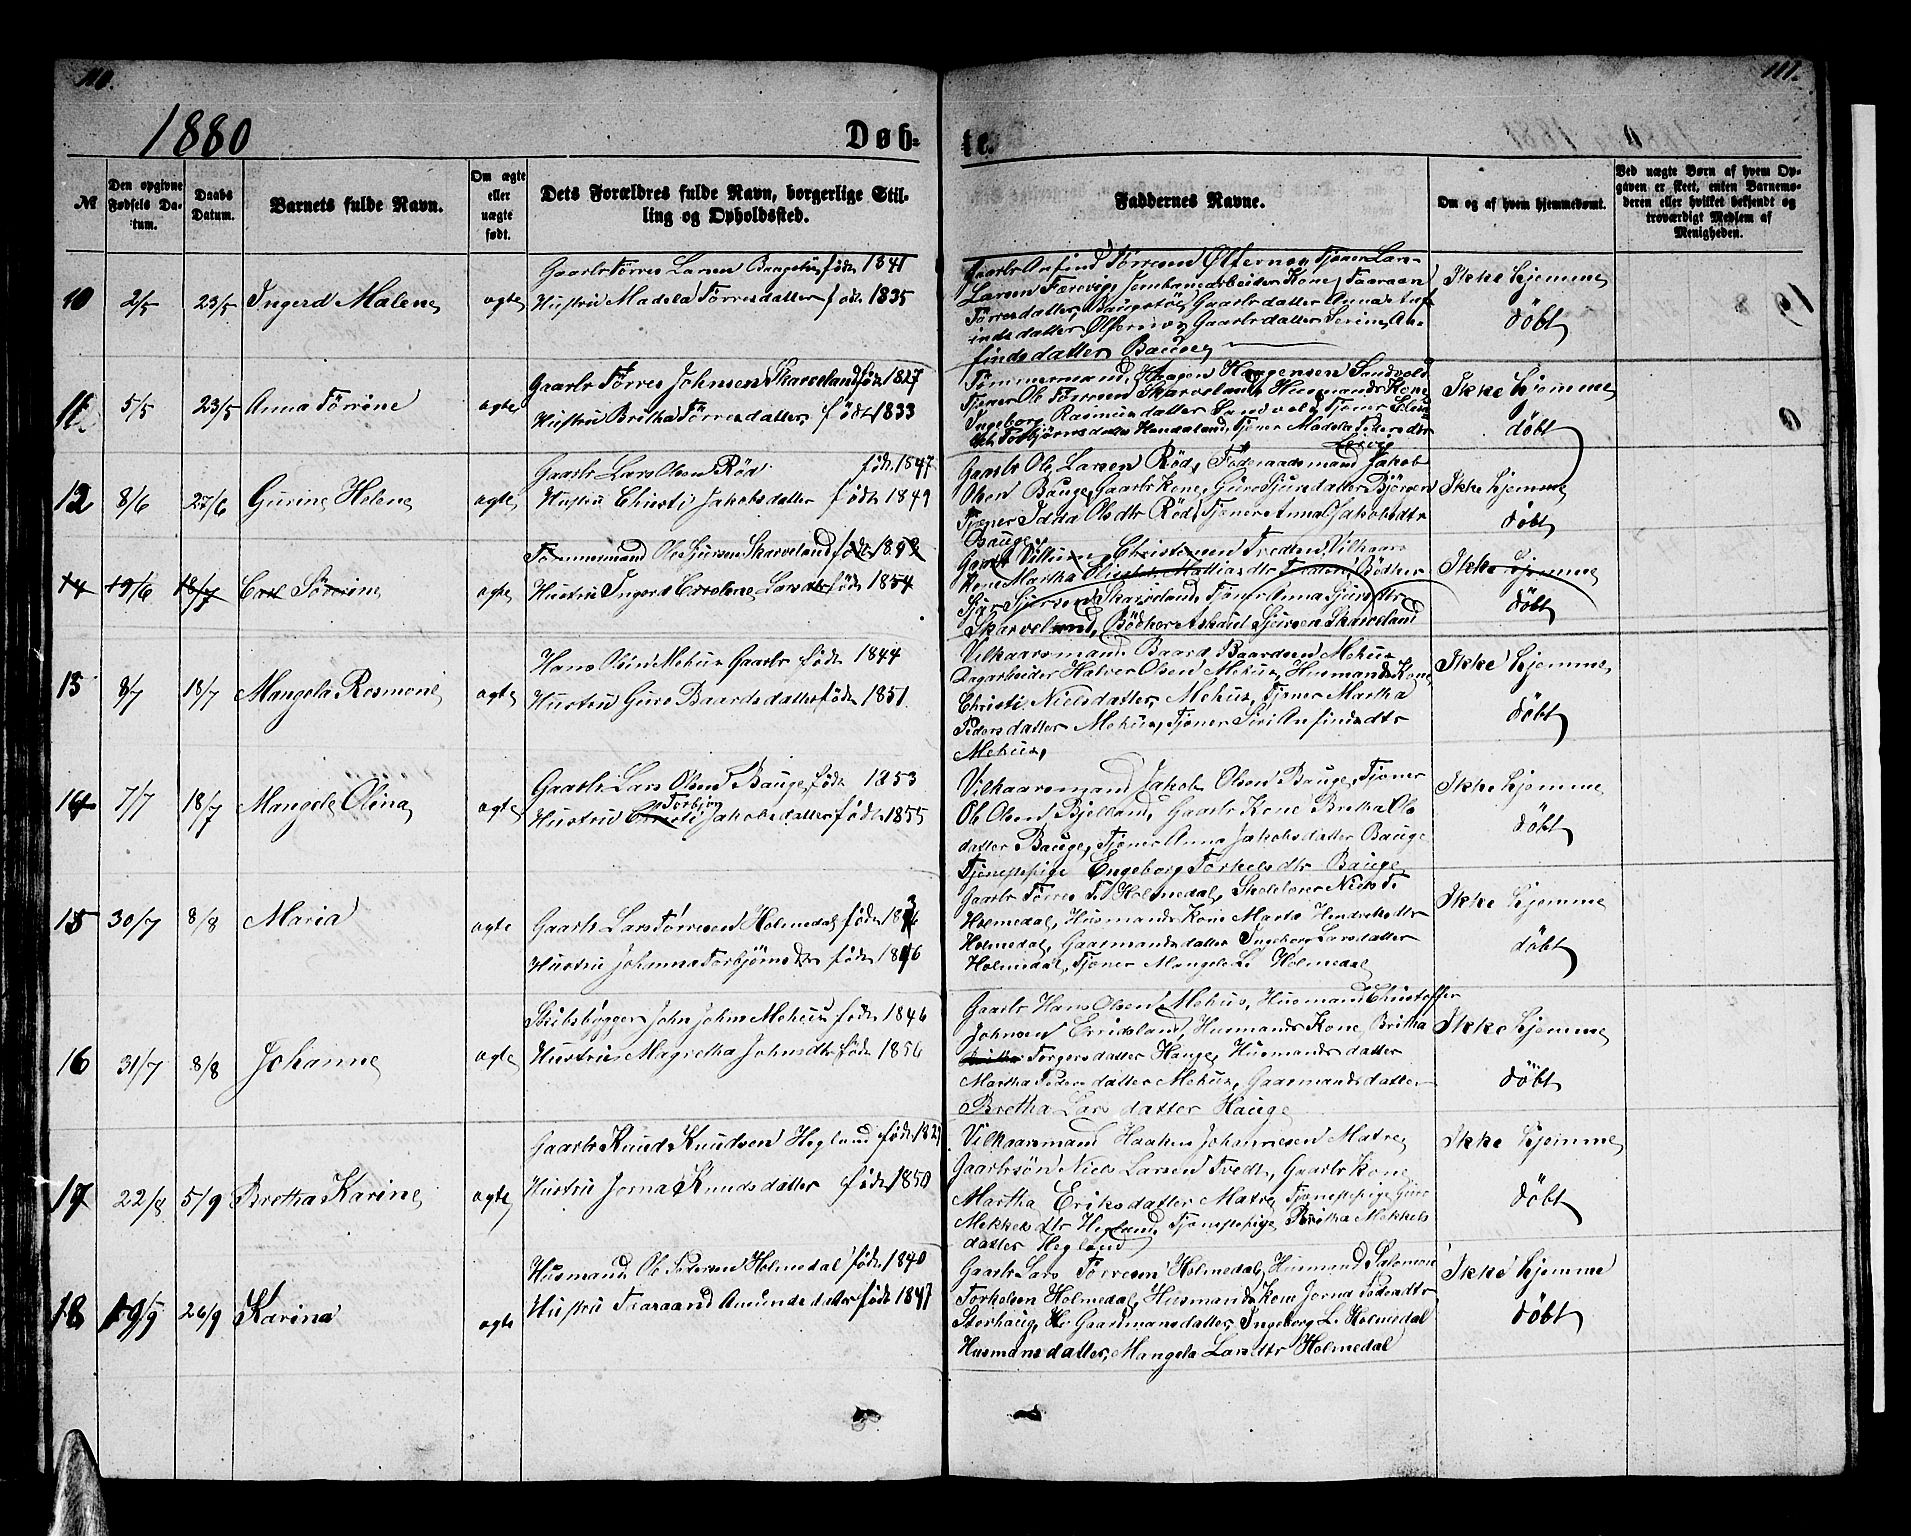 110.
111.
1880
Døb-
te.
№
Den opgivne Fødsels Datum.
Daabs Datum.
Barnets fulde Navn.
Om ægte eller uægte født.
Dets Forældres fulde Navn, borgerlige Stilling og Opholdssted.
Faddernes Navne.
Om og af hvem hjemmedøbt.
Ved uægte Børn af hvem Opgaven er skeet, enten Barnemoderen eller hvilket bekjendt og troværdigt Medlem af Menigheden.
10 2/5 23/5 Ingerd Malene ægte
Gaarbr Tørres Larsen Baugstøl født 1841
Hustru Madela Tørresdatter født 1835
Gaarbr Anfind Tørresen Ølfernes, Tjener Lars
Larsen Førevig, Jernbanearbeider Kone Taaraan
Tørresdatter, Baugstøl, Gaarbrdatter Anna Anf-
indsdatter Ølfernes, Gaarbrdatter Serine An-
findsdatter Bauge
Ikke hjemme
døbt
11 5/5 23/5 Anna Tørrine ægte
Gaarbr Tørres Johnsen Skarveland født 1827
Hustru Britha Tørresdatter, født 1833
Tømmermand, Haagen Haagensen Sandvold
Tjener Ol Tørresen Skarveland, Husmands Kone
Ingeborg Rasmusdatter Sandvold, Tjener
Torbjørnsdatter Handeland, Tjener Madela Pedersdtr
Ikke hjemme
døbt
12 8/6 27/6 Gurine Helene ægte
Gaarbr Lars Olsen Rød født 1847
Hustru Christi Jakobsdatter født 1849
Gaarbr Ole Larsen Rød, Føderaadsmand Jakob
Olsen Bauge, Gaarbr Kone, Guro Sjursdatter Bjørsen
Tjener Idna Olsdtr Rød, Tjener Anna Jakobsdtr
Bauge
Ikke hjemme
døbt
14 19/6 18/7 Carl Sørrine ægte
Tømmermand Ole Sjursen Skarveland født
Hustru Ingerd Larsdtr født 1854
Gaarbr Villum Christensen Tredten, Vilkaars
Kone Martha Mattiasdtr Tredten, Bødker
Sjur Sjursen Skarveland, Tjener Anna Sjursdtr
Skarveland, Bødker Askaut Sjursen Skarveland
Ikke hjemme
døbt
13 8/7 18/7 Mangela Rosmone ægte
Hans Olsen Mehus Gaarbr født 1844
Hustru Guro Baardsdatter født 1851
Vilkaarsmand Baard Baardsen Mehus
Dagarbeider Halver Olsen Mehus, Husmands Kone
Christi Nielsdatter, Mehus, Tjener Martha
Pedersdatter Mehus, Tjener Siri Anfindsdtr
Mehus,
Ikke hjemme,
døbt
14 7/7 18/7 Mangele Olina ægte
Gaarbr Lars Olsen Bauge, født 1853
Torbjør
Hustru Christi Jakobsdatter født 1855
Vilkaarsmand Jakob Olsen Bauge, Tjener
Ole Olsen Bjelland, Gaarbr Kone Britha Ols
datter Bauge, Tjener Anna Jakobsdatter Bauge
Tjenestepige Engeborg Torkelsdtr Bauge
Ikke hjemme
døbt
15 30/7 8/8 Maria ægte
Gaarbr Lars Tørresen Holmedal født
Hustru Johanna Torbjørnsdtr født
Gaarbr Tørres T. Holmedal, Skolelærer Niels T.
Holmedal, Husmands Kone Marta Hendriksdtr
Holmedal, Gaarmandsdatter Ingeborg Larsdatter
Holmedal, Tjener Mangela L. Holmedal
Ikke hjemme
døbt
16 31/7 8/8 Johanne ægte
Skibsbygger John Johns Mehus født 1846
Hustru Magretha Johnsdtr født 1856
Gaarbr Hans Olsen Mehus, Husmand Christoffer
Johnsen Eridsland, Husmands Kone, Britha
Torgersdatter Hauge, Husmandsdatter
Martha Pedersdatter Mehus, Gaarmandsdatter
Bretha Larsdatter Hauge
Ikke hjemme
døbt
17 22/8 5/9 Bretha Karine ægte
Gaarbr Knud Knudsen Hegland født 1829
Hustru Jorna Knudsdatter født 1850
Vilkaarsmand Haaken Johannesen Matre
Gaarbrsøn Niels Larsen Tvedt, Gaarbr Kone
Martha Eriksdatter Matre, Tjenestepige Guro
Mekkelsdtr Hegland, Tjenestepige Britha Mekkels
datter Hegland
Ikke hjemme
døbt
18 19/9 26/9 Karina ægte
Husmand Ole Pedersen Holmedal født 1840
Hustru Taaraand Amundsdatter født 1847
Gaarbr Lars Tørresen Holmedal, Husmand Salomon
Torkelsen Holmedal, Husmands Kone Jorna Pedersdtr
Storhaug, Gaardmansdatter, Ingeborg L. Holmedal
Husmansdatter, Mangela Larsdtr Holmedal
Ikke hjemme
døbt